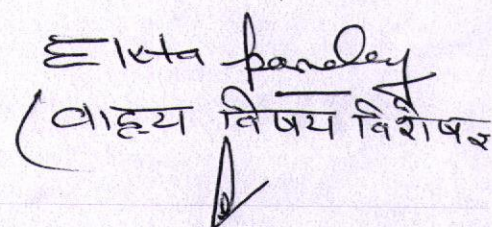 Ekta pandey
(वाह्य विषय विशेषज्ञ